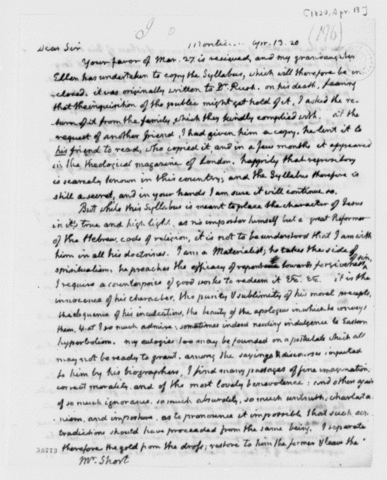 [1820, Apr. 13]
Dear Sir
Monticello Apr. 13. 20
Your favor of Mar. 27. is recieved, and my grandaughter
Ellen has undertaken to copy the Syllabus, which will therefore be in-
closed. it was originally written to Dr Rush. on his death, fearing
that the inquisition of the public might get hold of it, I asked the re-
turn of it from the family, which they kindly complied with. at the
request of another friend, I had given him a copy. he lent it to
his friend to read, who copied it, and in a few months it appeared
in the theological magazine of London. happily that repository
is scarcely known in this country; and the Syllabus therefore is
still a secret, and in your hands I am sure it will continue so.
But while this Syllabus is meant to place the character of Jesus
in it's true and high light, as no impostor himself but a great Reformer
of the Hebrew code of religion, it is not to be understood that I am with
him in all his doctrines. I am a Materialist; he takes the side of
spiritualism. he preaches the efficacy of repentance towards forgiveness of sin,
I require a counterpoise of good works to redeem it &c. &c. it is the
innocence of his character, the purity & sublimity of his moral precepts,
the eloquence of his inculcations, the beauty of the apologues in which he conveys
them, that I so much admire; sometimes indeed needing indulgence to Eastern
hyperbolism. my eulogies too may be founded on a postulate which all
may not be ready to grant. among the sayings & discourses imputed
to him by his biographers, I find many passages of fine imagination,
correct morality, and of the most lovely benevolence: and others again
of so much ignorance, so much absurdity, so much untruth, charlata-
nism, and imposture, as to pronounce it impossible that such con-
tradictions should have proceeded from the same being. I separate
therefore the gold from the dross; restore to him the former & leave the
Mr. Short